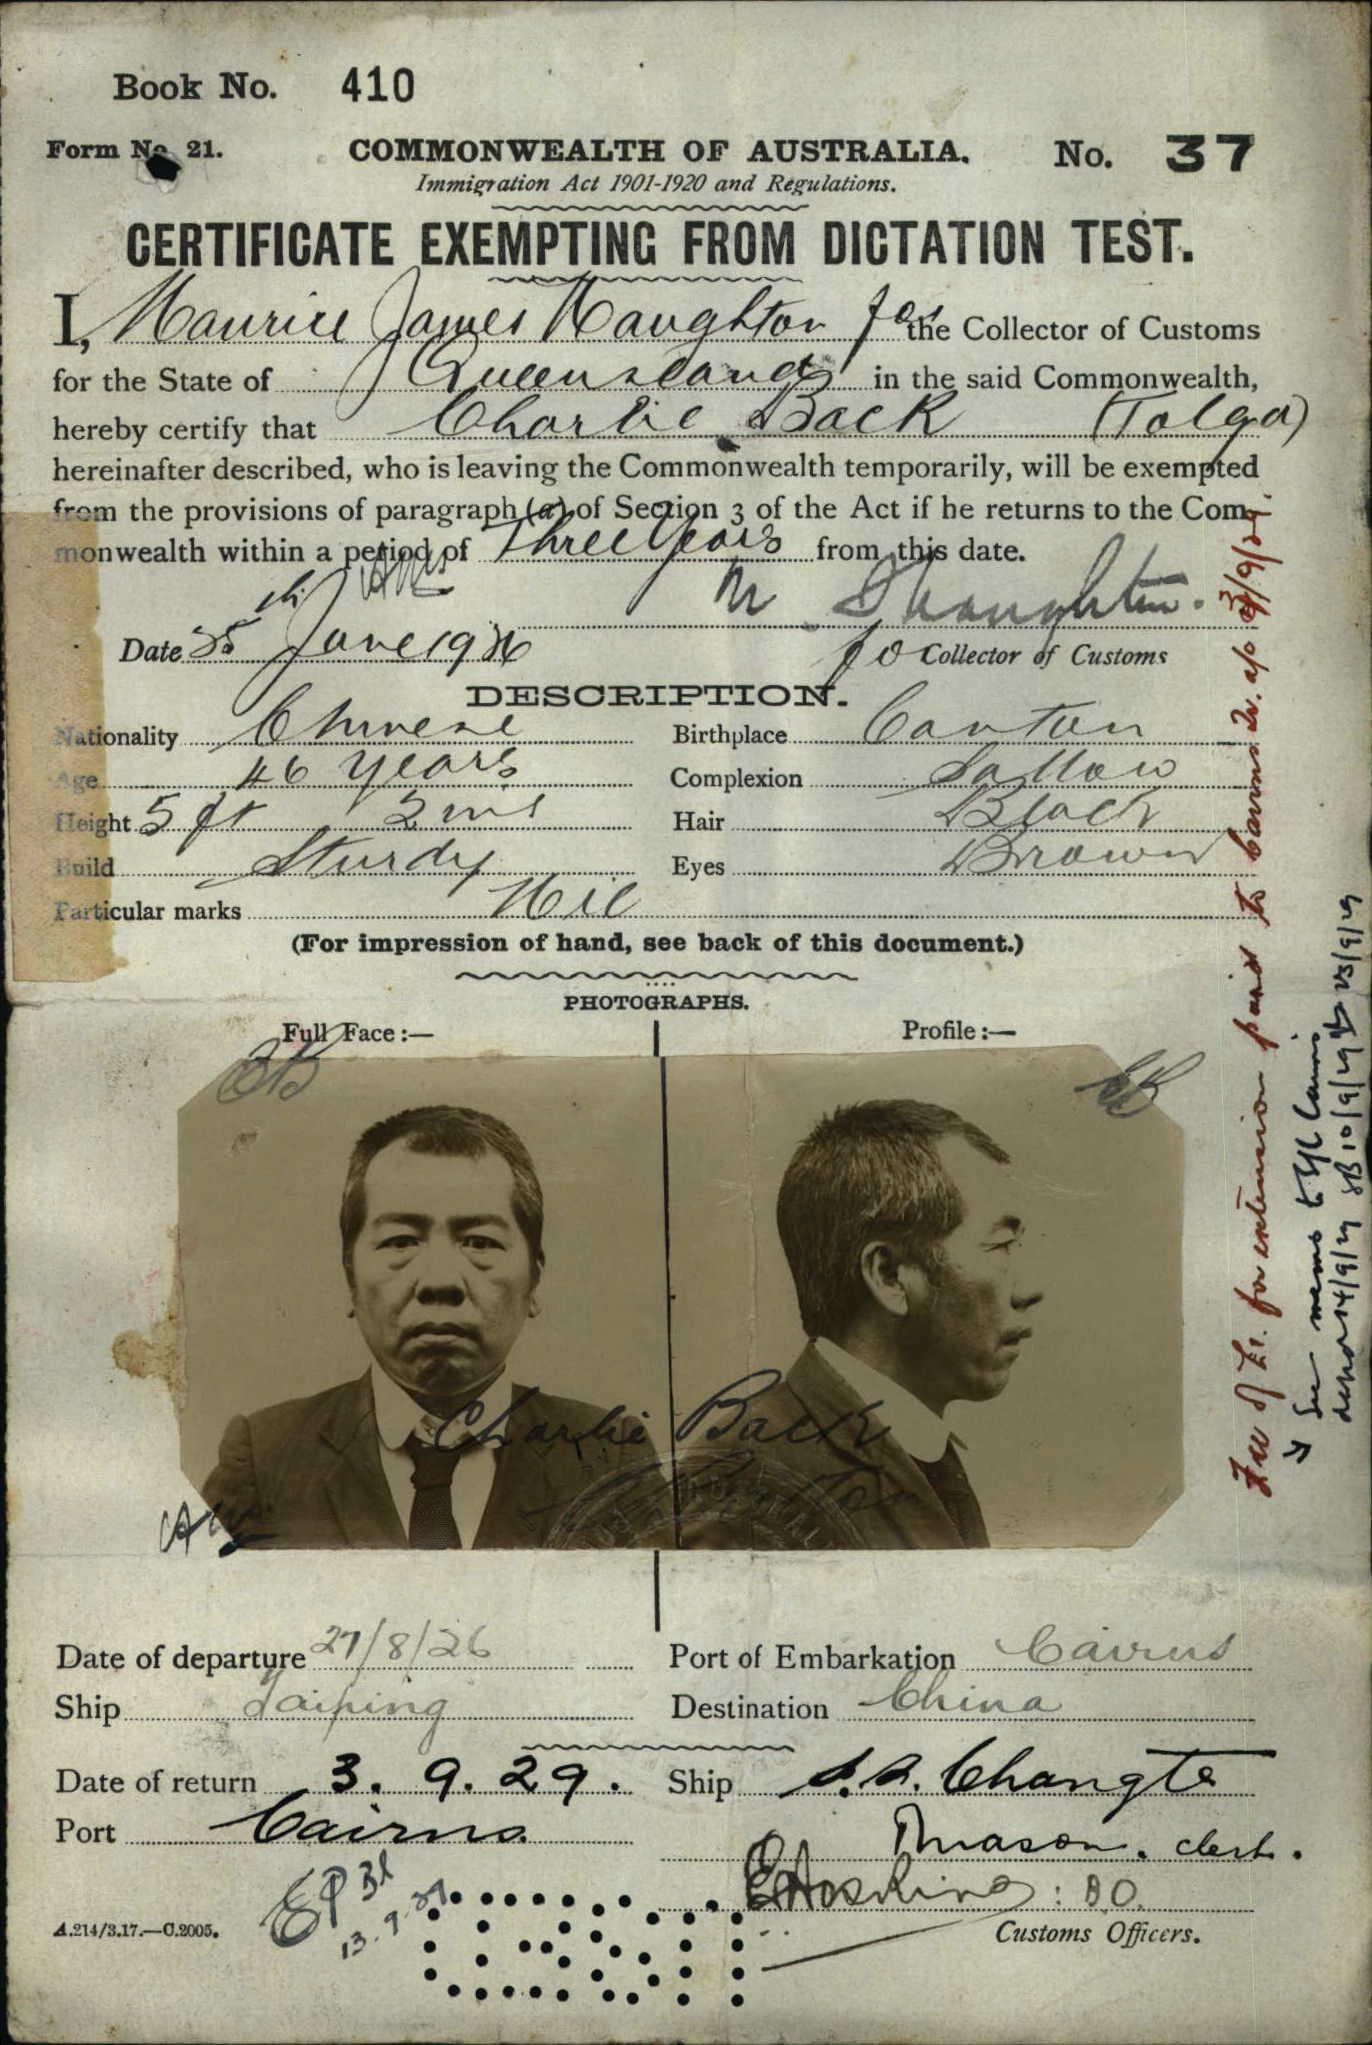 Book No. 410
Form No. 21. COMMONWEALTH OF AUSTRALIA. No. 37
Immigration Act 1901-1920 and Regulations.
CERTIFICATE EXEMPTING FROM DICTATION TEST.
I, Maurice James Haughton for the Collector of Customs
for the State of Queensland in the said Commonwealth,
hereby certify that Charlie Back (Tolga)
hereinafter described, who is leaving the Commonwealth temporarily, will be exempted
from the provisions of paragraph (a) of Section 3 of the Act if he returns to the Com-
monwealth within a period of Three Years from this date.
M. J. Haughton.
Date 25th June 1926 for Collector of Customs
DESCRIPTION.
Nationality Chinese Birthplace Canton
Age 46 years Complexion Sallow
Height 5 ft 2 ins Hair Black
Build Sturdy Eyes Brown
Particular marks Nil
(For impression of hand, see back of this document.)
PHOTOGRAPHS.
Full Face:— Profile:—
CB CB
Charlie Back
Canton
Date of departure 27/8/26 Port of Embarkation Cairns
Ship Taiping Destination China
Date of return 3. 9. 29. Ship S.S. Changte
Port Cairns
Mason. clerk.
E Hoskins: B.O.
A.214/3.17.—C.2005. Customs Officers.
13.9.29
Fee of £1. for extension paid to Cairns 3/9/29
See memo to Cairns
14/9/29 10/9/29 23/9/29